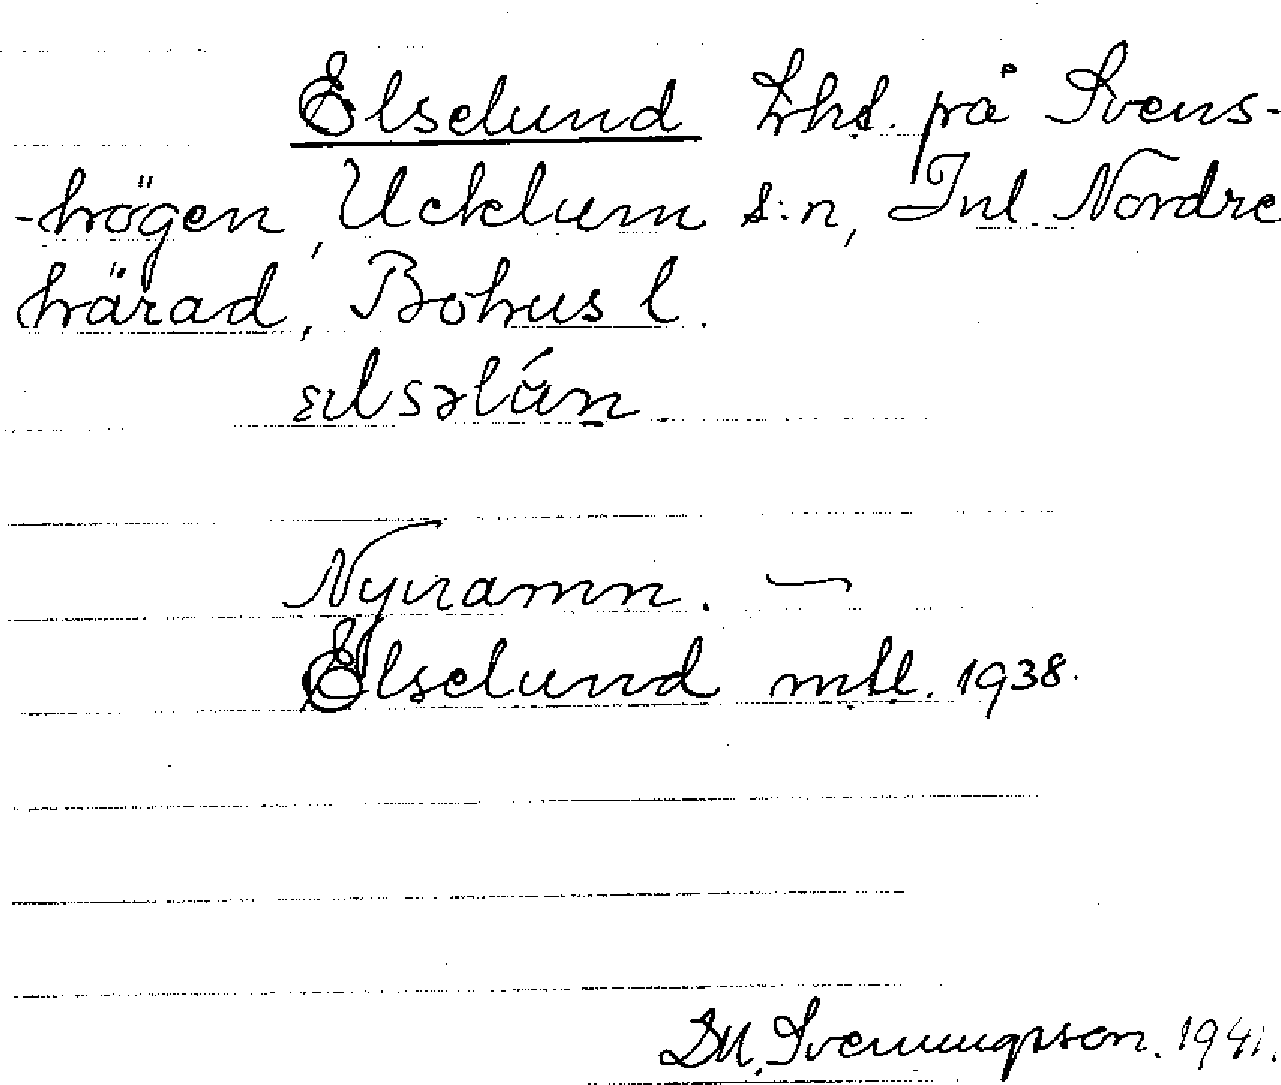 Elselund Lhs. på Svens-
-högen, Ucklum s:n, Inl. Nordre
härad, Bohus l.
Nynamn. —
Elselund mtl. 1938.
Svenungsson. 1941.